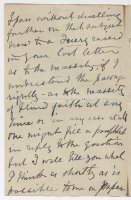 I pass without dwelling
further on that subject
now to a Query raised
in your last letter
as to the necessity if I
understand the passage
rightly - as to the necessity
of blind faith at any
time or in any case what
one might fill a pamphlet
in reply to the question
but I will tell you what
I think as shortly as is
possible to me on paper